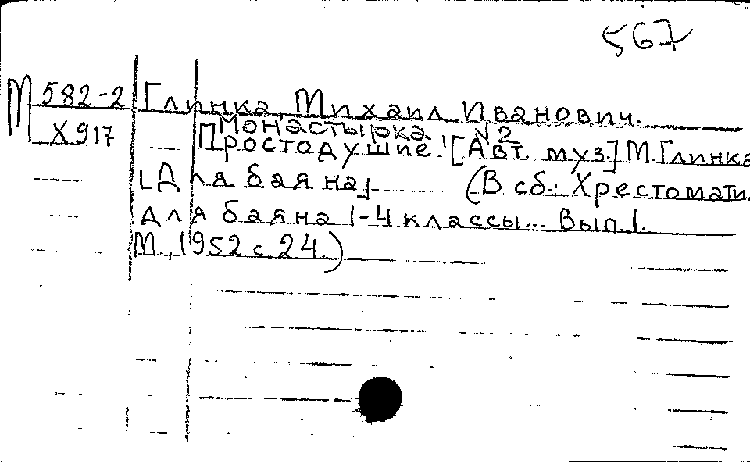 567
М 582-2 Глинка Михаил Иванович.
Х917 Монастырка № 2
Простодушие! [Авт. муз.] М. Глинка
[Для баяна] (В сб.: Хрестомати.
для баяна 1-4 классы... Вып. 1.
М., 1952 с. 24.)